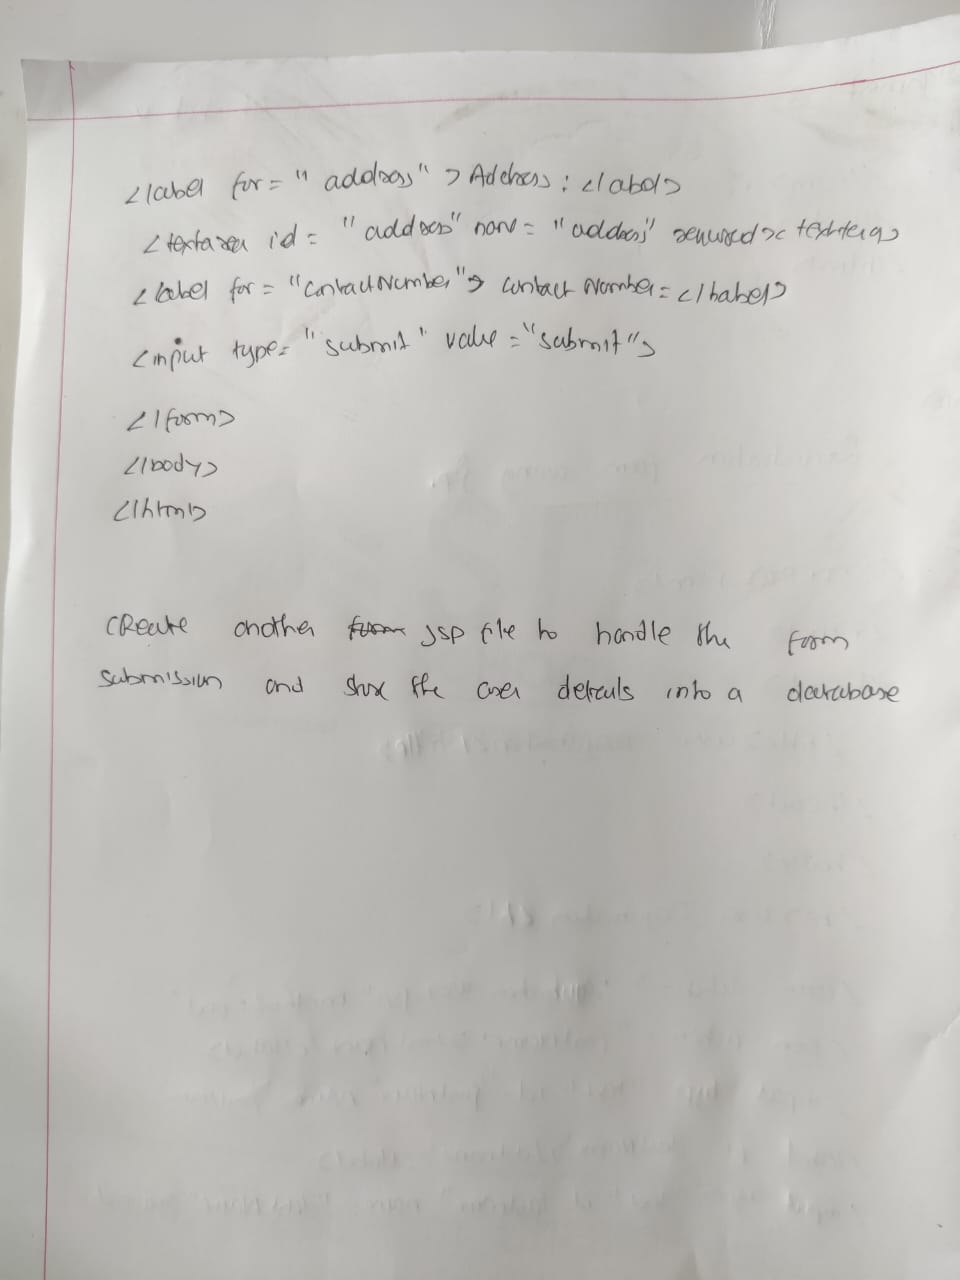 <label for = "address" > Address : </label>
<textarea id = "address" name = "address" required >< textarea>
<label for = "ContactNumber"> contact Number = </label>
<input type= "submit" value = "submit">
</form>
</body>
</html>
CReate another form jsp file to handle the form
submission and store the user details into a database